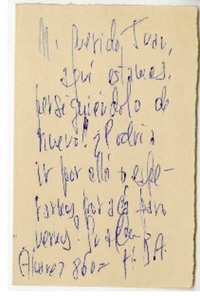 Mi querido Juan,
aquí estamos,
persiguiéndolo de
nuevo. ¿Podría
ir por allá o espe-
rarnos por acá para
vernos?
Alvarez 8602